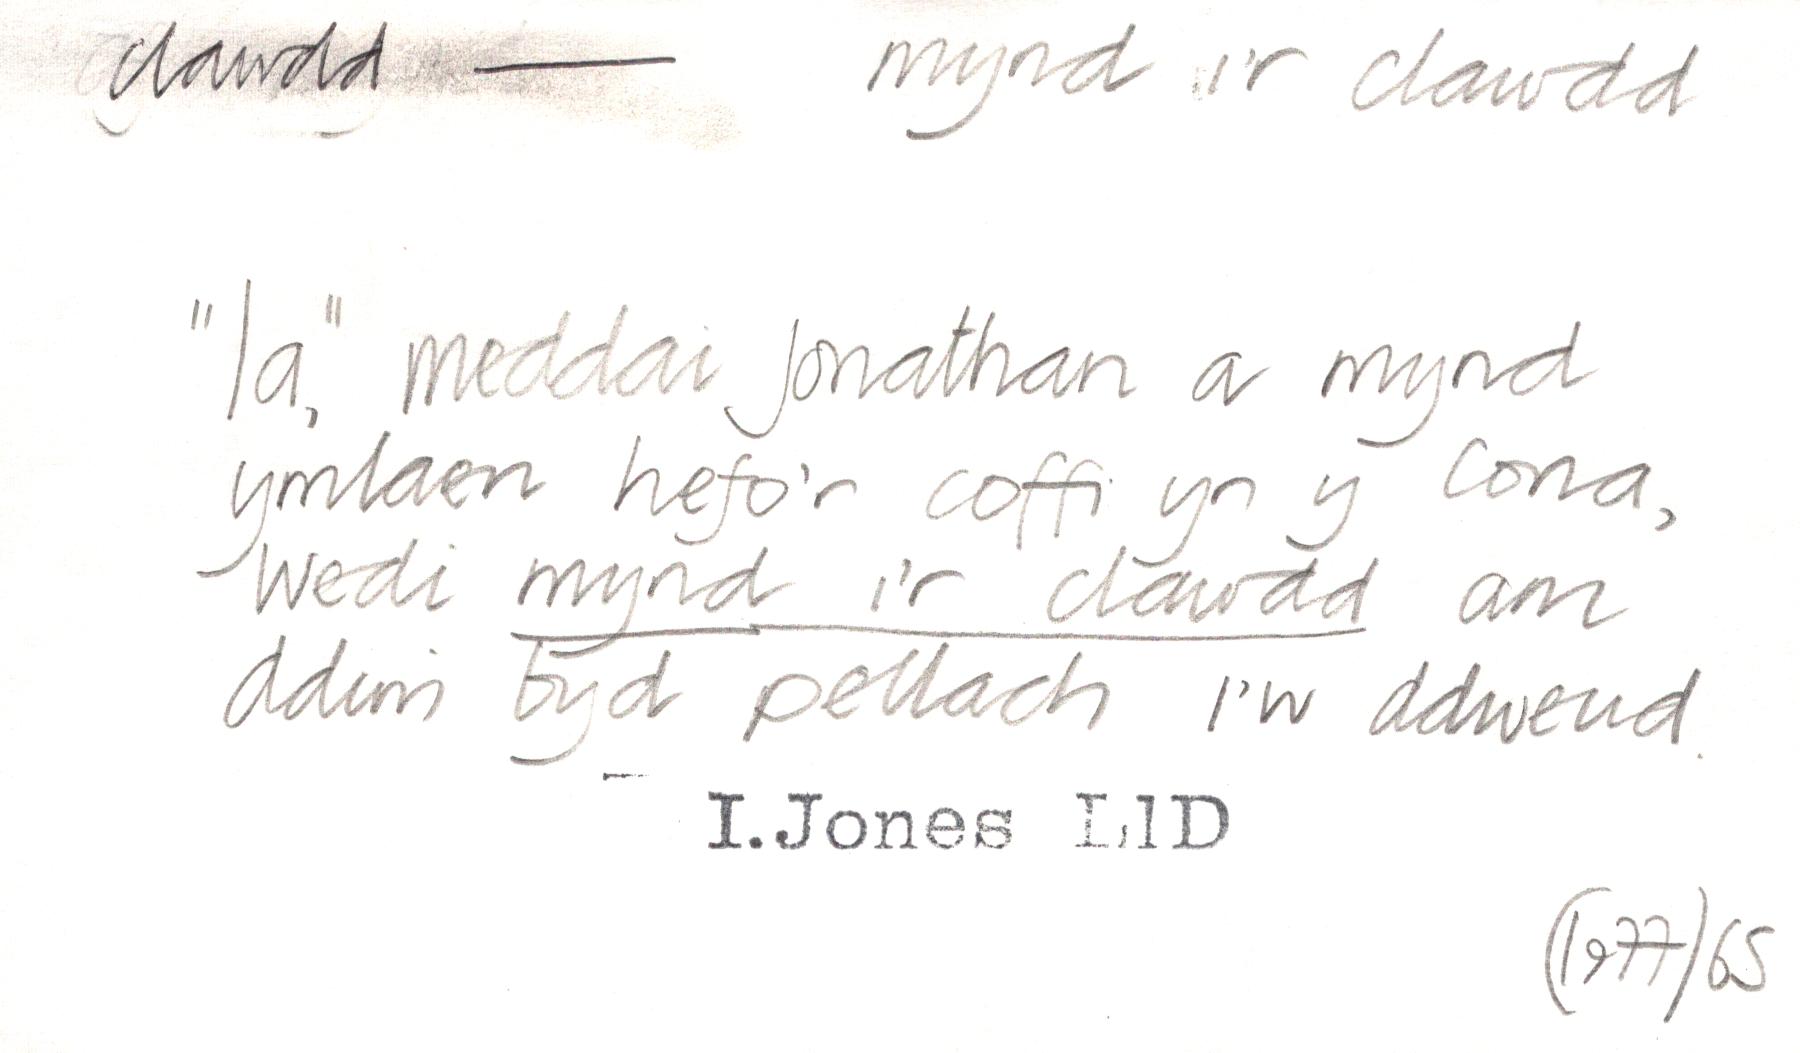 clawdd — mynd i'r clawdd
"Ia," meddai Jonathan a mynd
ymlaen hefo'r coffi yn y Cona,
wedi mynd i'r clawdd am
ddim byd pellach i'w ddweud.
– I.Jones LlD
(1977) 65